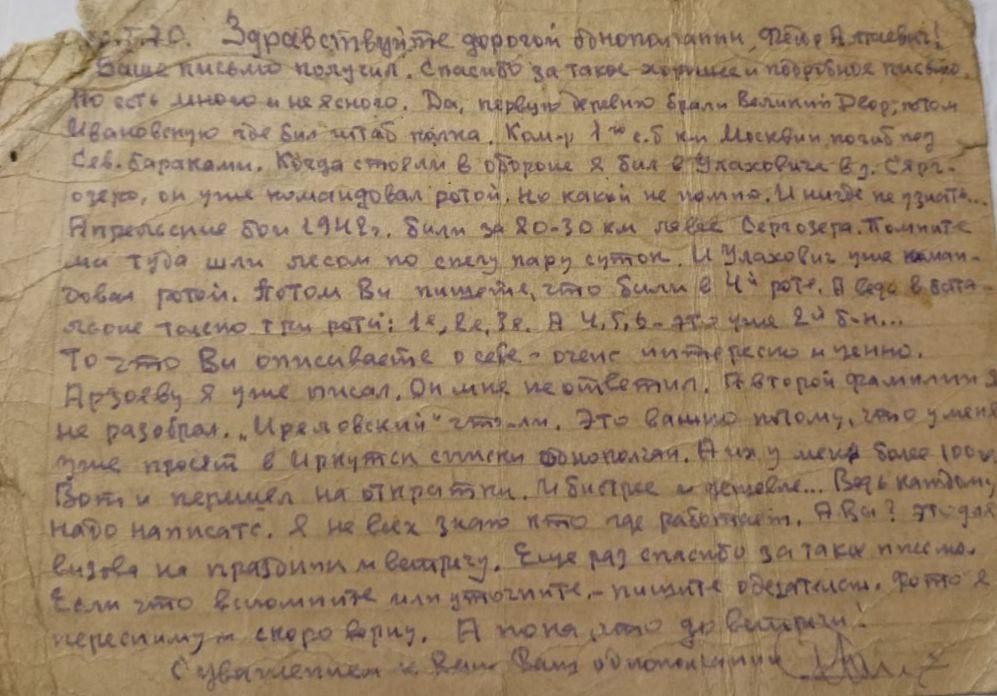 .I.70. Здравствуйте дорогой однополчанин, Фёдор !
Ваше письмо получил. Спасибо за такое хорошее и подробное письмо.
Но есть много и неясного. Да, первую деревню брали Великий Двор, потом
Ивановскую где бил штаб полка. Ком-р 1го с.б к-н Москвин погиб под
Сев. бараками. Когда стояли в обороне я бил в Улаховича в д. Сярг-
озеро, он уже командовал ротой. Но какой не помню. И нигде не узнать...
Апрельские бои 1942г. били за 20-30 км левее Сергозера. Помните
ми туда шли лесом по снегу пару суток. И Улахович уже коман-
довал ротой. Потом Ви пишете, что били в 4й роте. А ведь в бата-
льоне только три роти: 1я, 2я, 3я. А 4,5,6 - это уже 2й б-н...
То что Ви описиваете о себе - очень интересно и ценно.
Арзаеву я уже писал. Он мне не ответил. А второй фамилии я
не разобрал. „ " что-ли. Это важно потому, что у меня
уже просят в Иркутск списки однополчан. А их у меня более 100
Вот и перешел на открытки. И бистрее и дешевле... Ведь каждому
надо написать. Я не всех знаю кто где работает. А Ви? Это для
визова на праздник и встречу. Еще раз спасибо за такое письмо.
Если что вспомните или уточните, - пишите обезательно. Фото я
пересниму и скоро верну. А пока, что до встречи!
С уважением к Вам Ваш однополчанин